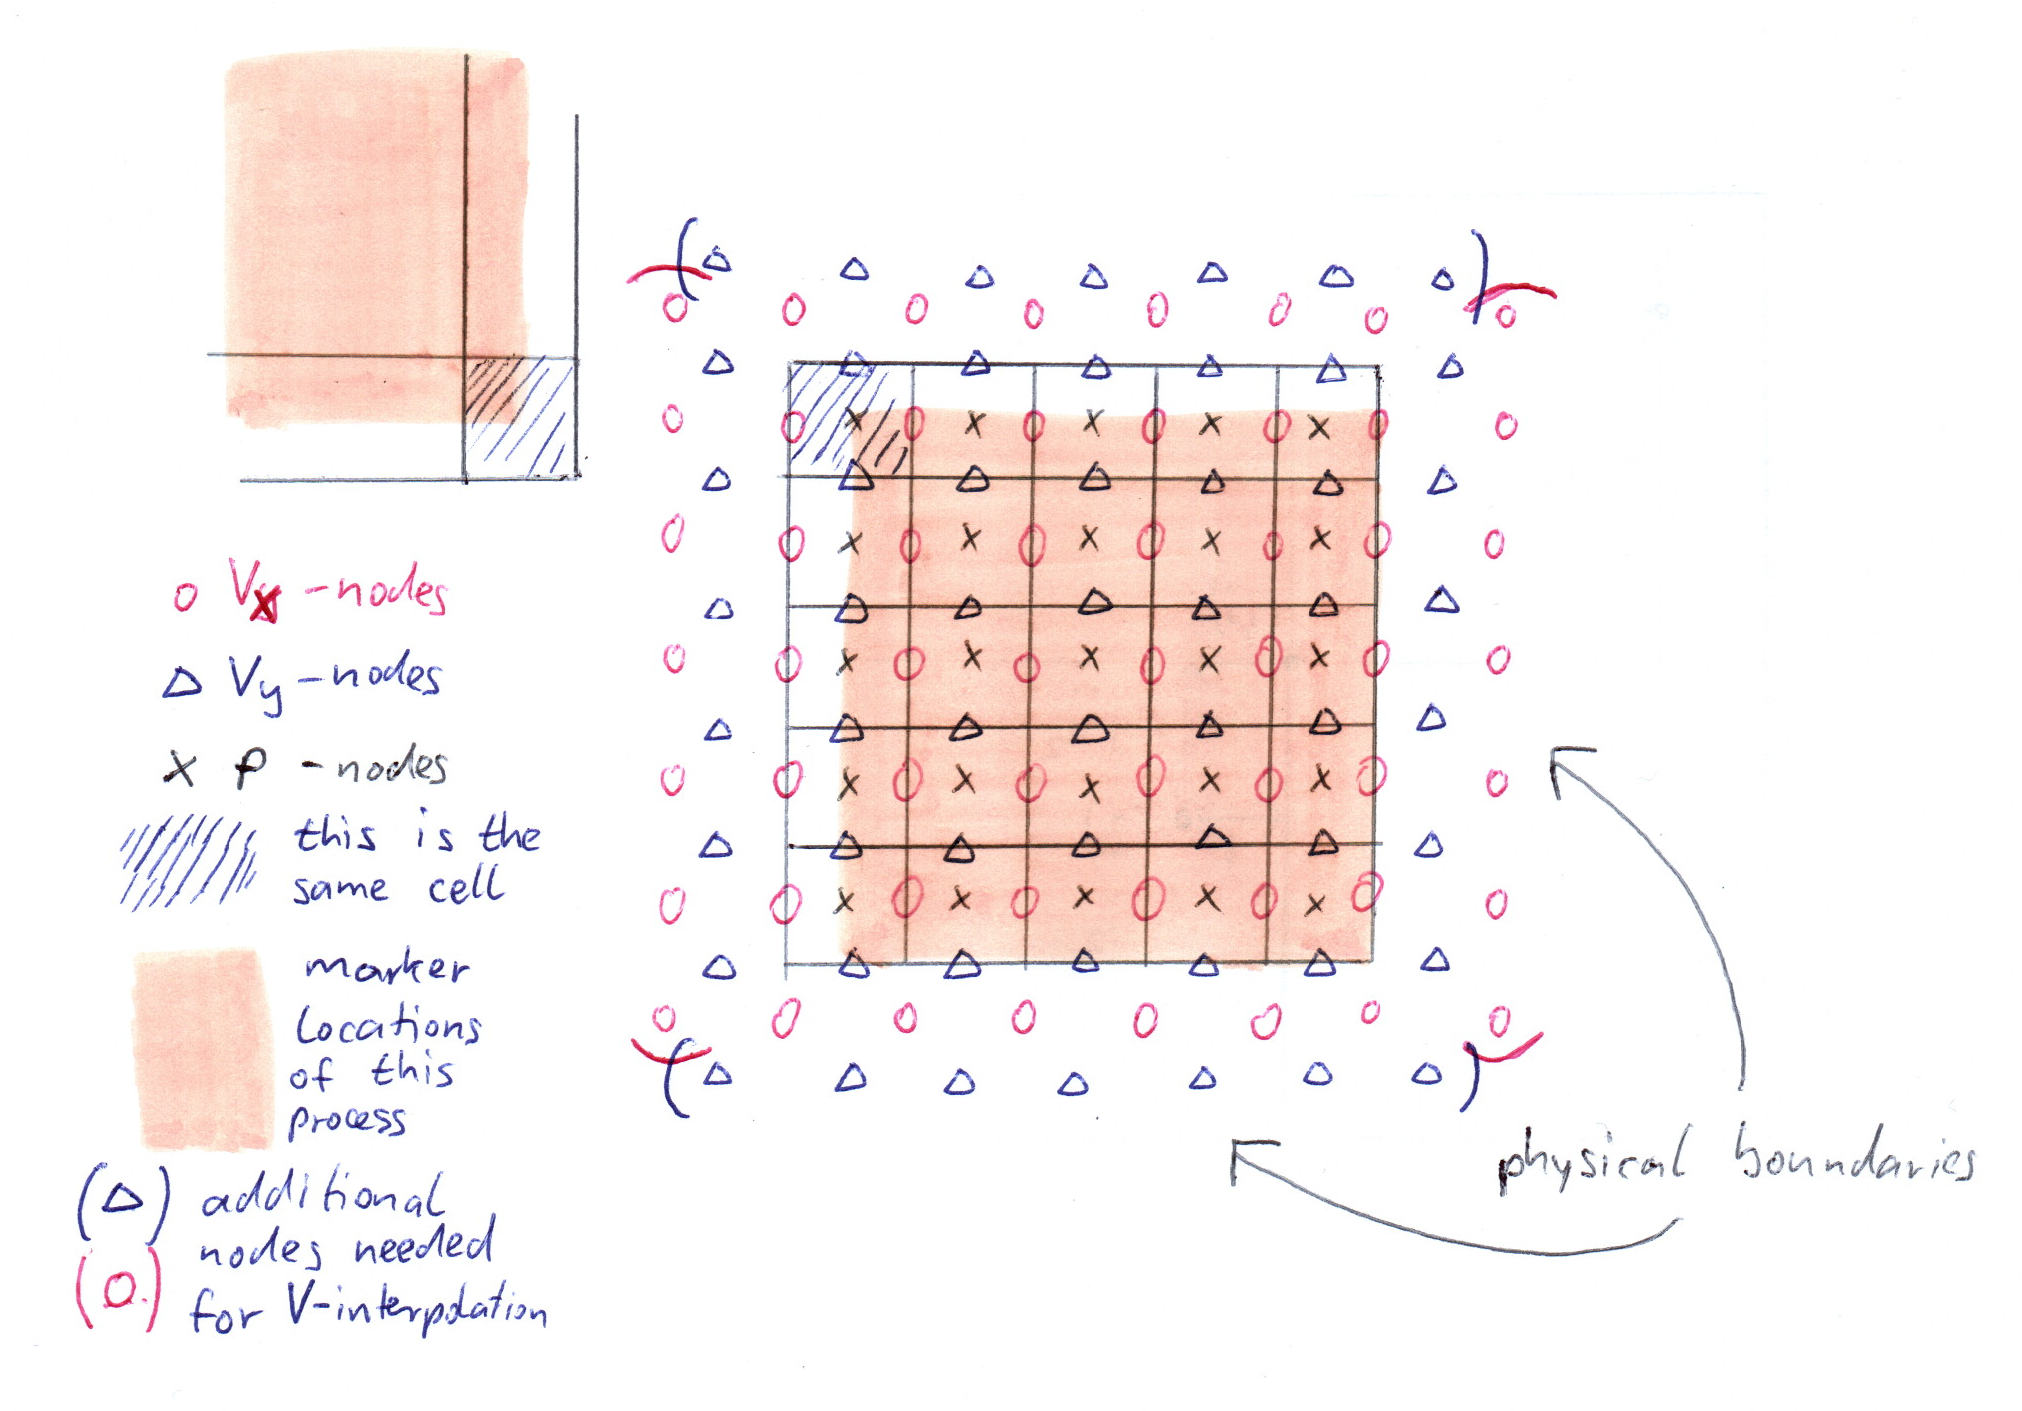 o Vx - nodes
△ Vy - nodes
x P - nodes
this is the
same cell
marker
locations
of this
process
(△) additional
nodes needed
(o) for V-interpolation
physical boundaries